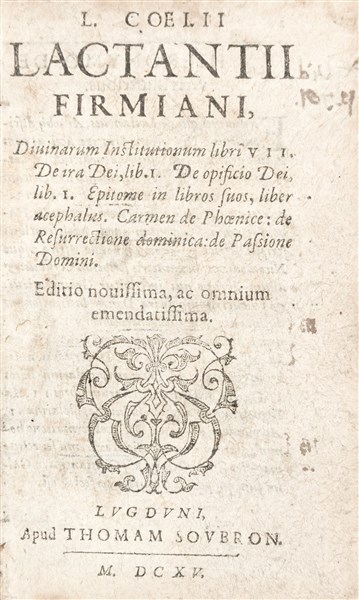 L. COELII
LACTANTII
FIRMIANI,
Diuinarum Institutionum libri VII.
De ira Dei, lib. I. De opificio Dei,
lib. I. Epitome in libros suos, liber
acephalus. Carmen de Phœnice: de
Resurrectione dominica: de Passione
Domini.
Editio nouissima, ac omnium
emendatissima.
LVGDVNI,
Apud THOMAM SOVBRON.
M. DCXV.